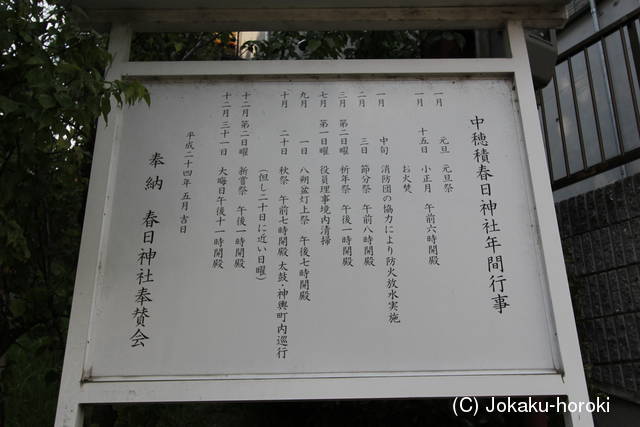 中穂積春日神社年間行事
一月　元旦　元旦祭
一月　十五日　小正月　午前六時開殿
お火焚
一月　中旬　消防団の協力により防火放水実施
二月　三日　節分祭　午前八時開殿
三月　第二日曜　祈年祭　午後一時開殿
七月　第一日曜　役員理事境内清掃
九月　一日　八朔盆灯上祭　午後七時開殿
十月　二十日　秋祭　午前七時開殿　太鼓・神輿町内巡行
（但し二十日に近い日曜）
十二月第二日曜　新嘗祭　午後一時開殿
十二月三十一日　大晦日午後十一時開殿
平成二十四年五月吉日
奉納　春日神社奉賛会
(C) Jokaku-horoki